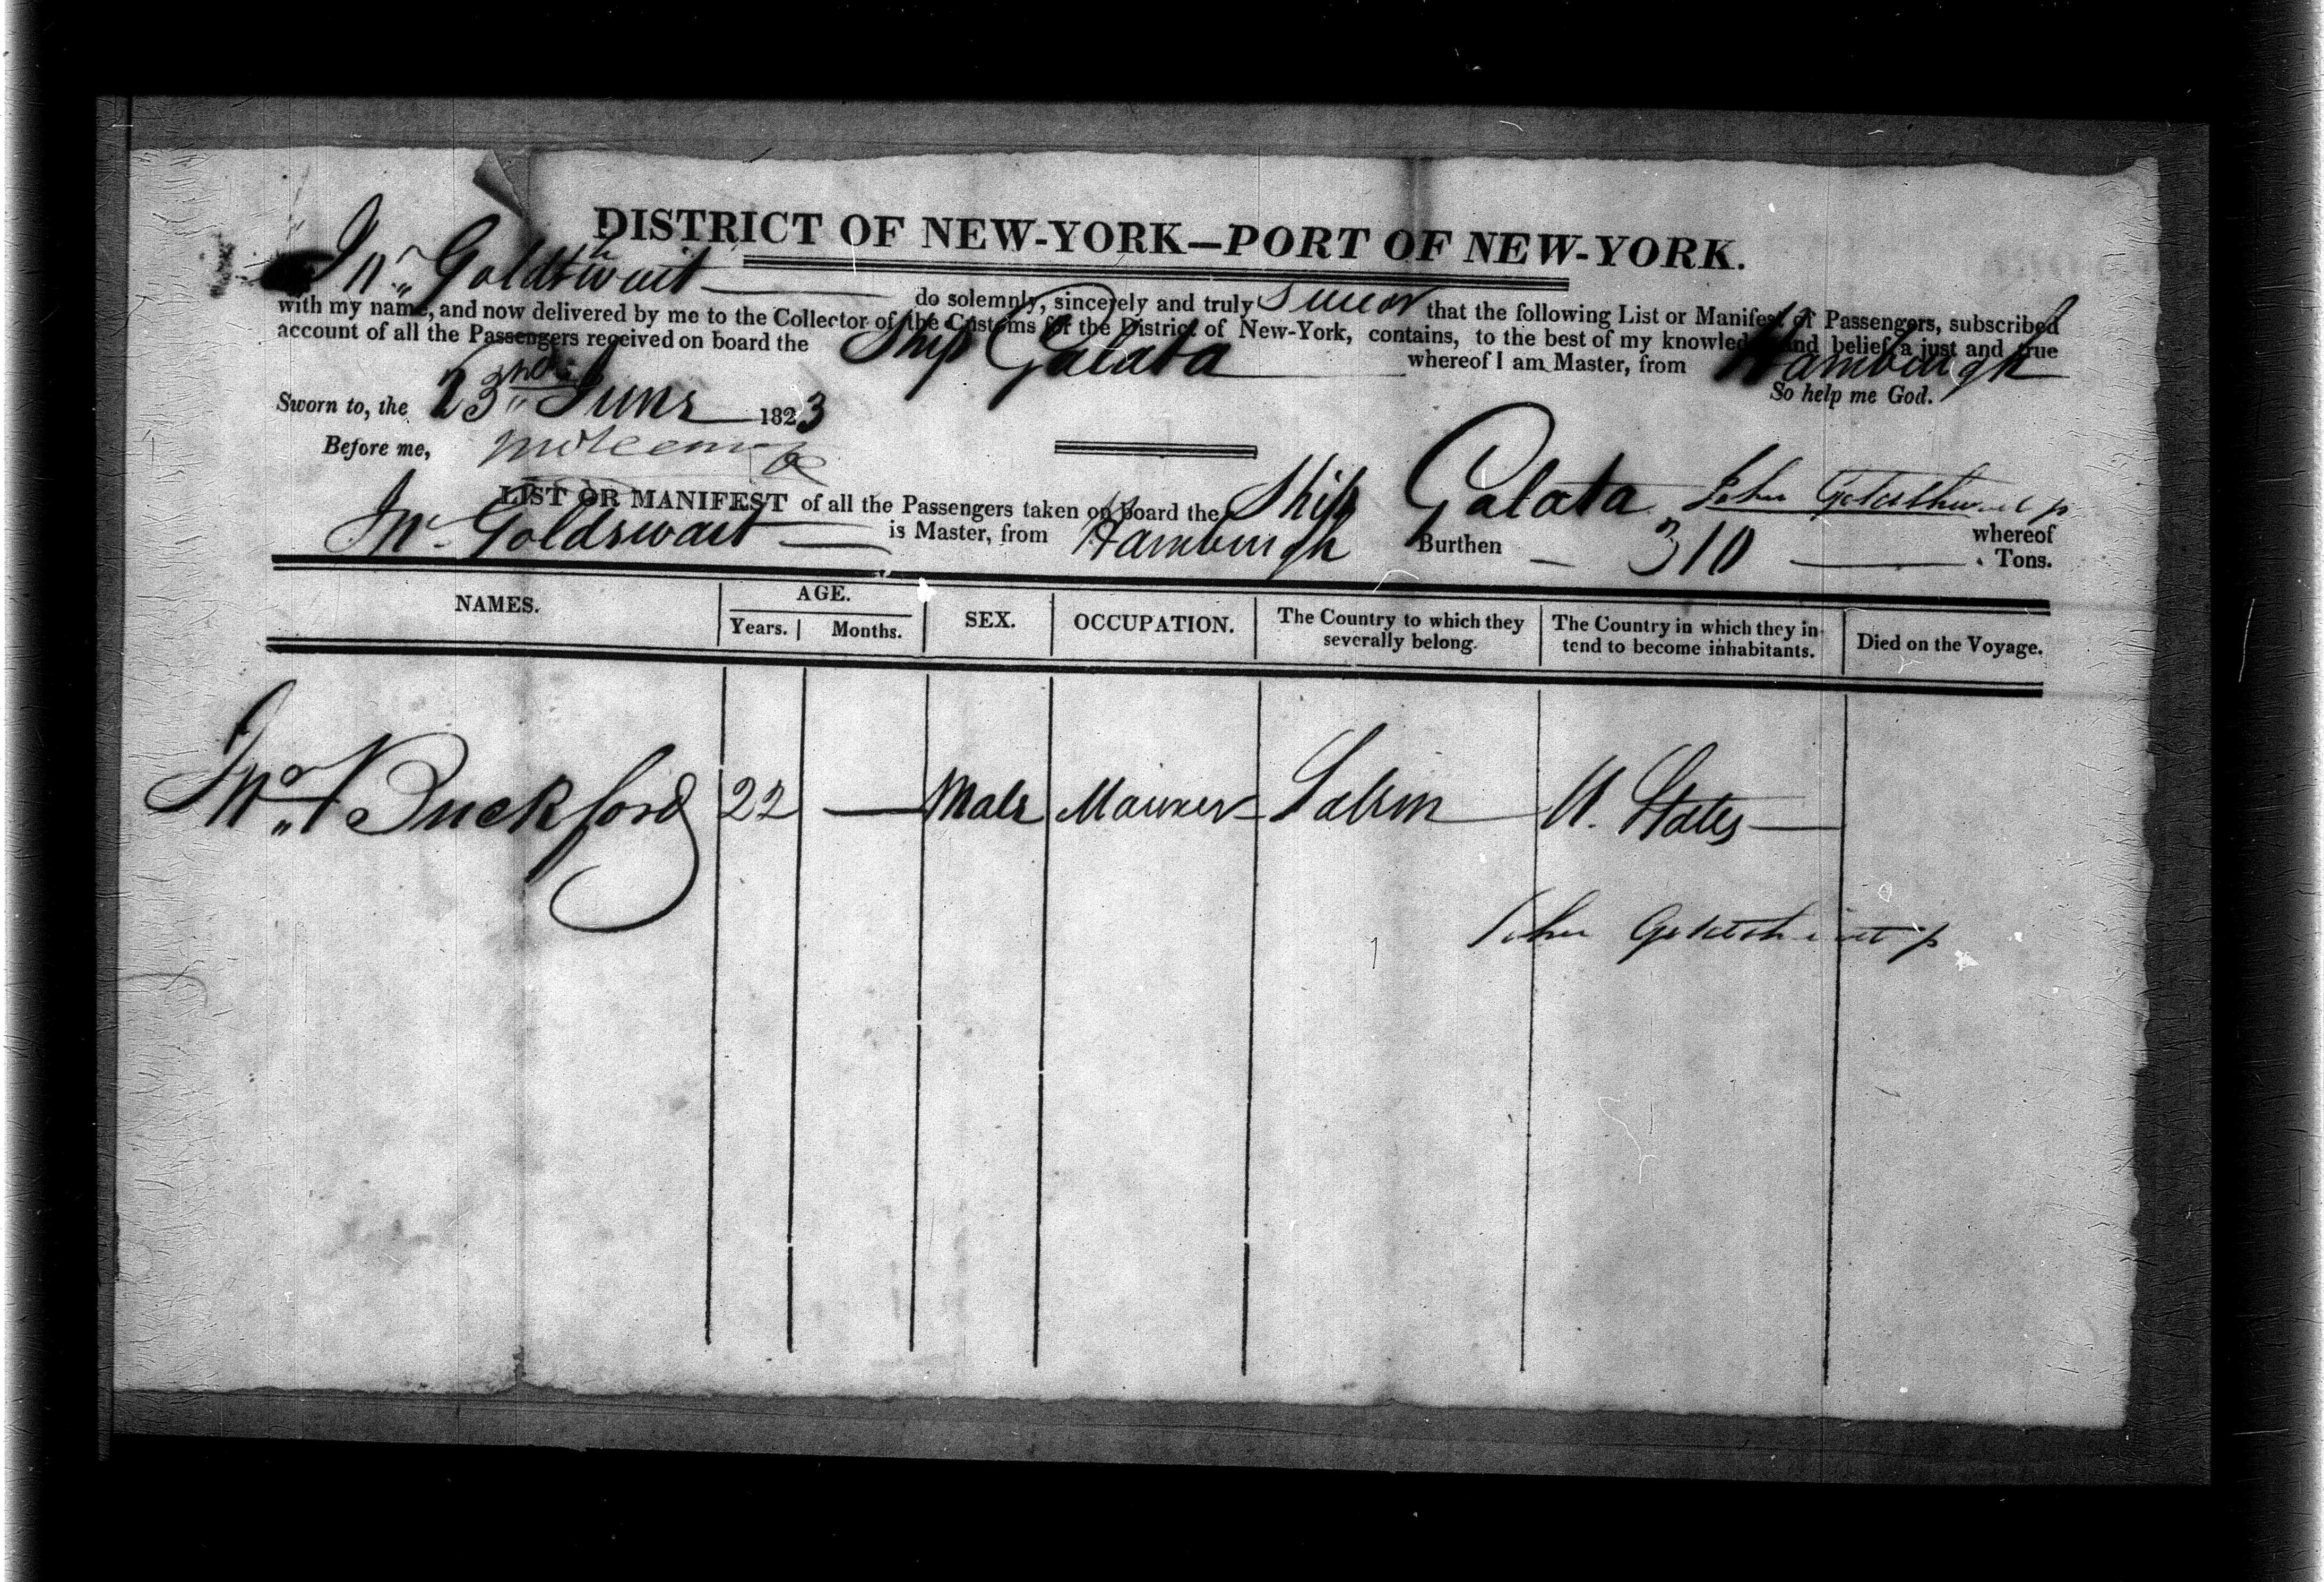 DISTRICT OF NEW-YORK—PORT OF NEW-YORK.
Jno. Goldthswait do solemnly, sincerely and truly Swear that the following List or Manifest of Passengers, subscribed
with my name, and now delivered by me to the Collector of the Customs for the District of New-York, contains, to the best of my knowledge and belief, a just and true
account of all the Passengers received on board the Ship Galata whereof I am Master, from Hamburgh
So help me God.
Sworn to, the 23rd June 1823
Before me,
LIST OR MANIFEST of all the Passengers taken on board the Ship Galata John Goldthwait jr whereof
Jno Goldswait is Master, from Hamburgh Burthen — 310 Tons.
NAMES. AGE. Years. Months. SEX. OCCUPATION. The Country to which they severally belong. The Country in which they intend to become inhabitants. Died on the Voyage.
Jno. Buckford 22 — Male Mariner Salem U. States
John Goldthwait jr